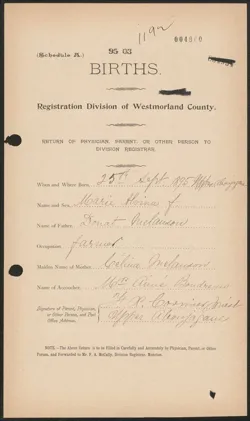 1192
95 03
(Schedule A.)
BIRTHS.
Registration Division of Westmorland County.
RETURN OF PHYSICIAN, PARENT, OR OTHER PERSON TO
DIVISION REGISTRAR.
When and Where Born, 25th Sept. 1895 Upper
Name and Sex, Marie f
Name of Father, Donat Melanson
Occupation, farmer
Maiden Name of Mother, Céline Melanson
Name of Accoucheur, Mrs
Signature of Parent, Physician,
or Other Person, and Post
Office Address,
Upper
NOTE.—The Above Return is to be Filled in Carefully and Accurately by Physician, Parent, or Other
Person, and Forwarded to Mr. F. A. McCully, Division Registrar, Moncton.